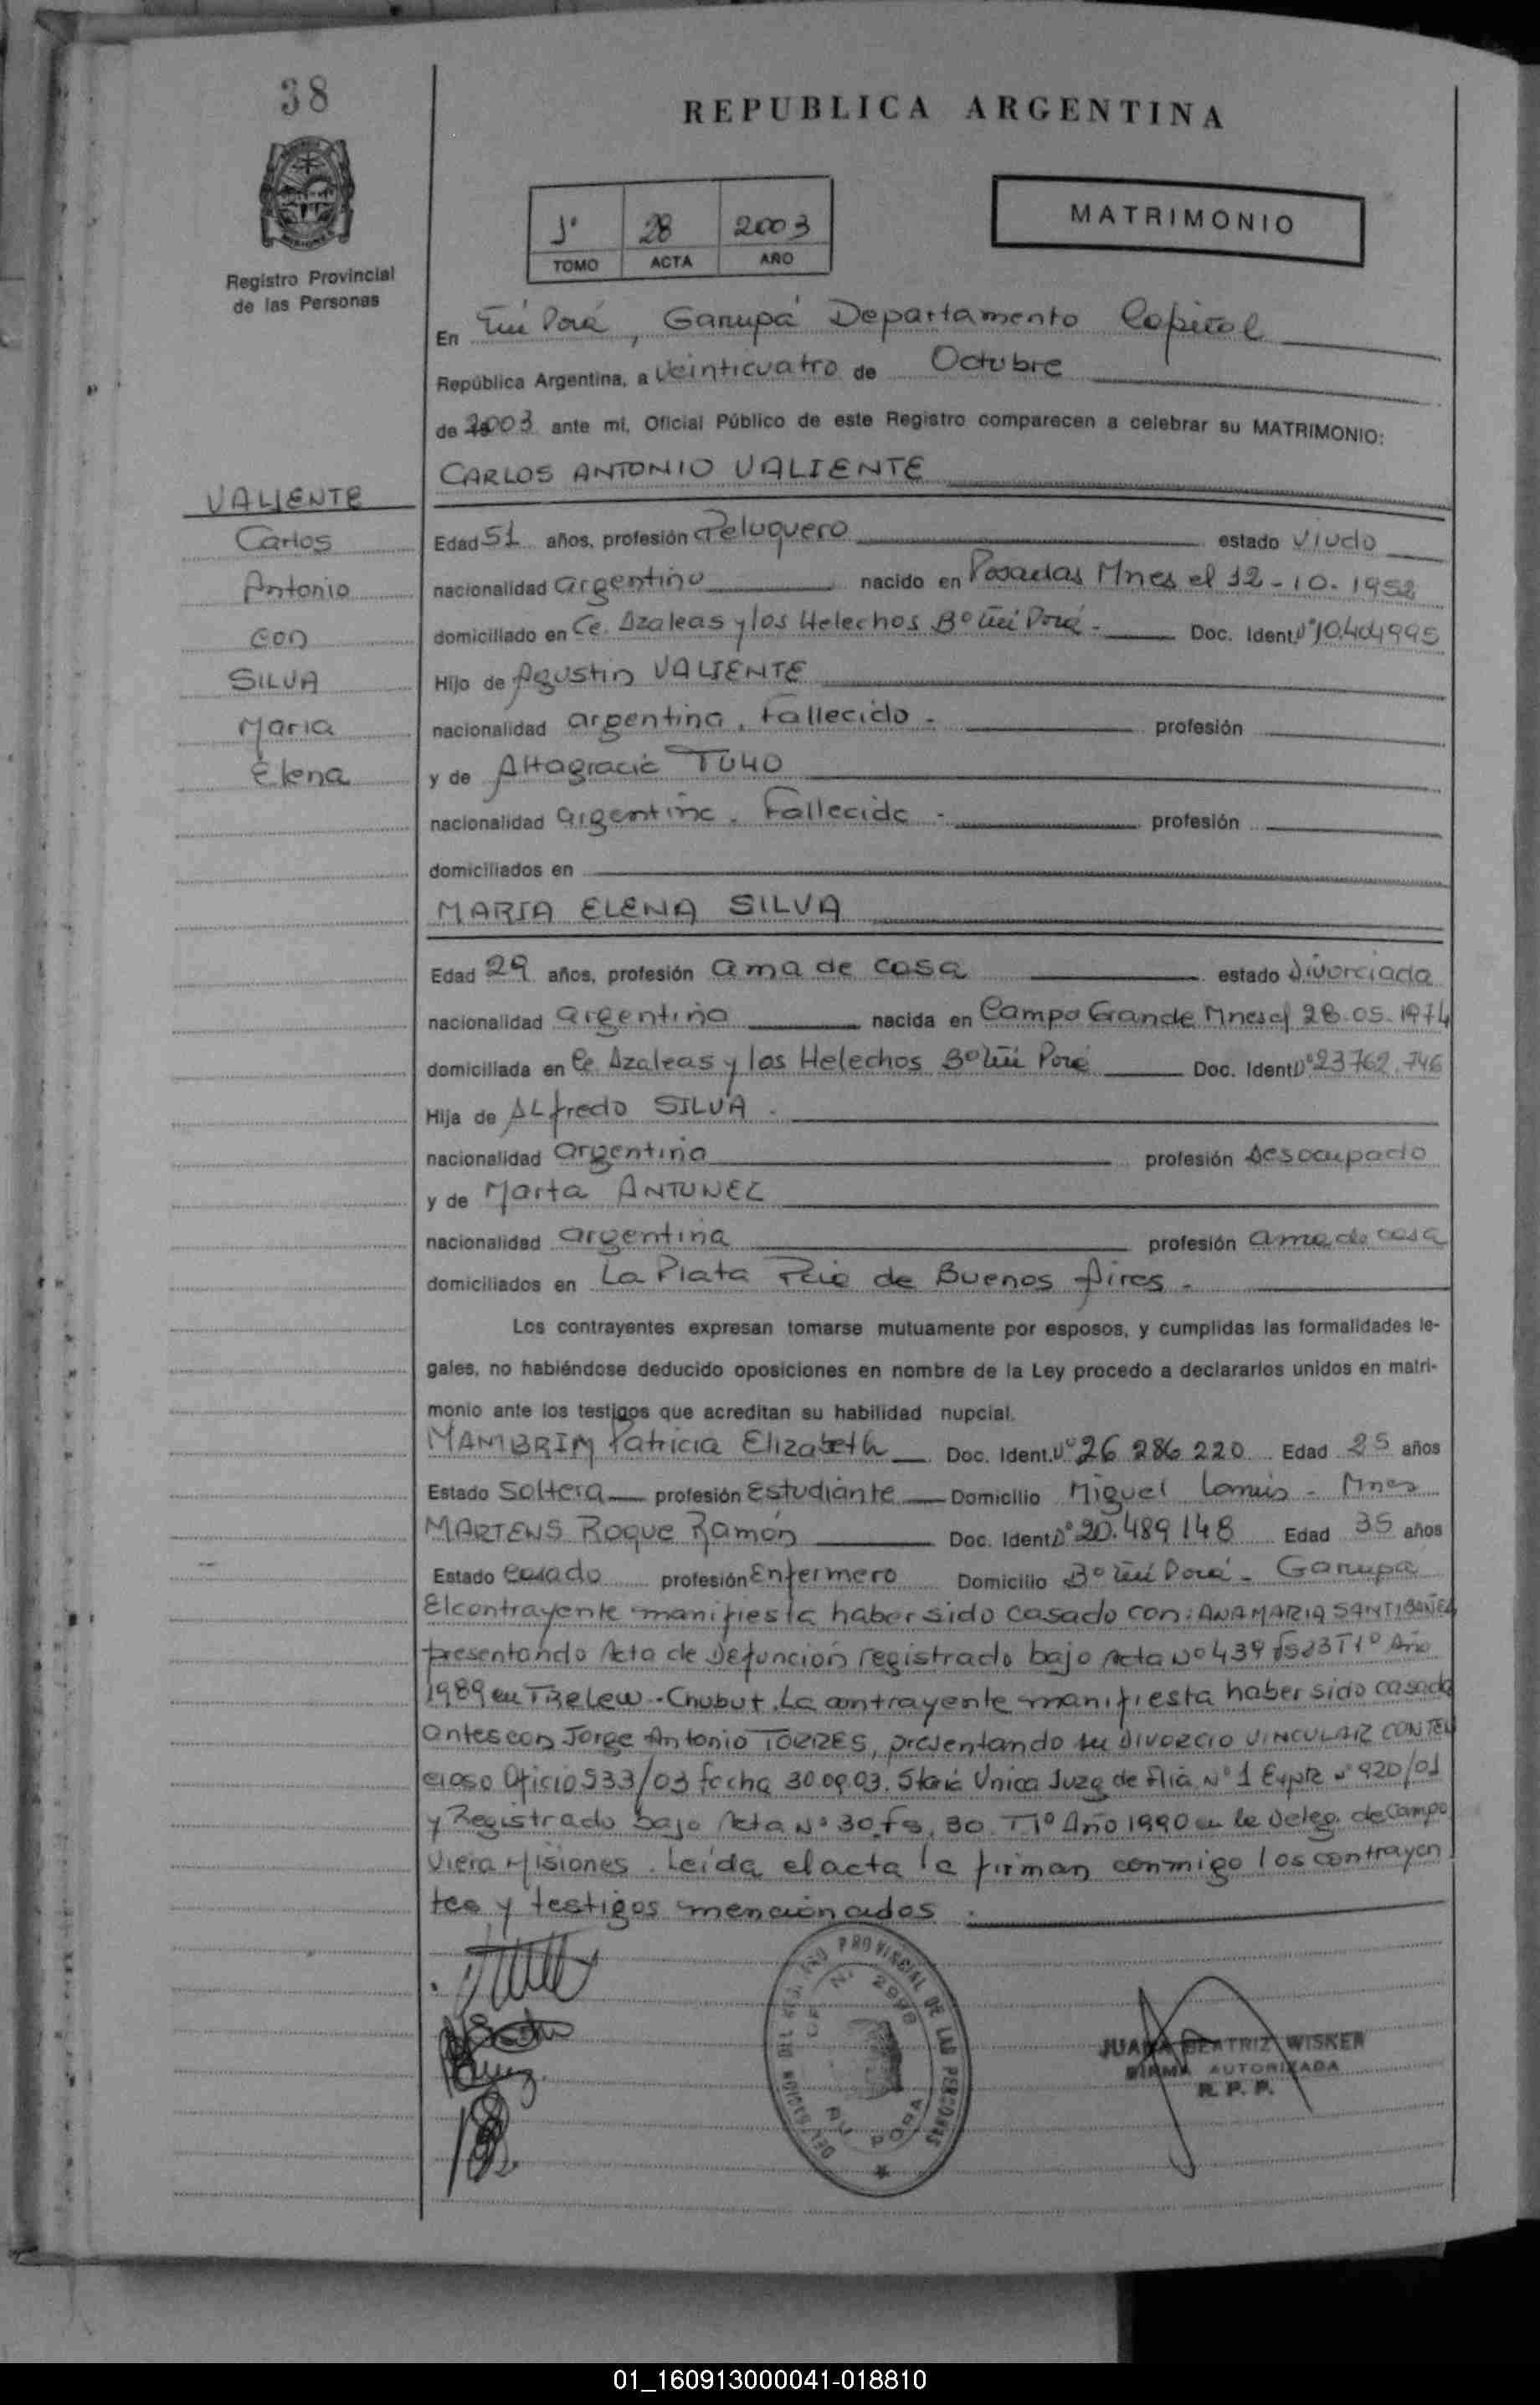 38
REPUBLICA ARGENTINA
Registro Provincial
de las Personas
1° 28 2003
TOMO ACTA AÑO
MATRIMONIO
En Ñu Porá, Garupá Departamento Capital
República Argentina, a veinticuatro de Octubre
de 2003 ante mi, Oficial Público de este Registro comparecen a celebrar su MATRIMONIO:
CARLOS ANTONIO VALIENTE
VALIENTE
Carlos
Antonio
con
SILVA
Maria
Elena
Edad 51 años, profesión Peluquero estado Viudo
nacionalidad argentino nacido en Posadas Mnes el 12-10-1952
domiciliado en Ce. Azaleas y los Helechos B° Ñu Porá - Doc. Ident. N°
Hijo de Agustin VALIENTE
nacionalidad argentina. Fallecido - profesión
y de Altagracia
nacionalidad argentina. Fallecida - profesión
domiciliados en
MARIA ELENA SILVA
Edad 29 años, profesión ama de casa estado Divorciada
nacionalidad argentina nacida en Campo Grande Mnes el 28-05-1974
domiciliada en Ce. Azaleas y los Helechos B° Ñu Porá Doc. Ident. N° 23762.746
Hija de Alfredo SILVA -
nacionalidad argentina profesión Desocupado
y de Marta ANTUNEZ
nacionalidad argentina profesión ama de casa
domiciliados en La Plata Pcia de Buenos Aires -
Los contrayentes expresan tomarse mutuamente por esposos, y cumplidas las formalidades le-
gales, no habiéndose deducido oposiciones en nombre de la Ley procedo a declararlos unidos en matri-
monio ante los testigos que acreditan su habilidad nupcial.
MAMBRIM Patricia Elizabeth Doc. Ident. N° 26 286 220 Edad 25 años
Estado Soltera profesión Estudiante Domicilio Miguel Lanus - Mnes
MARTENS Roque Ramón Doc. Ident. N° 20.489 148 Edad 35 años
Estado Casado profesión Enfermero Domicilio B° Ñu Porá - Garupá
El contrayente manifiesta haber sido casado con: ANA MARIA SANTIBAÑEZ
presentando Acta de Defuncion registrado bajo Acta N° 439 T1° Año
1989 en TRELEW - Chubut. La contrayente manifiesta haber sido casada
antes con Jorge Antonio TORRES, presentando su DIVORCIO VINCULAR CONTEN
cioso Oficio 533/03 fecha 30.09.03. Staria Unica Juzg de Flia. N° 1 Expte N° 920/01
y Registrado bajo Acta N° 30. Fs, 30 T1° Año 1990 en la Deleg. de Campo
Viera Misiones. Leida el acta la firman conmigo los contrayen
tes y testigos mencionados -
DELEGACION DEL REGISTRO PROVINCIAL DE LAS PERSONAS
ÑU PORA
JUANA BEATRIZ WISKER
FIRMA AUTORIZADA
R. P. P.
01_160913000041-018810